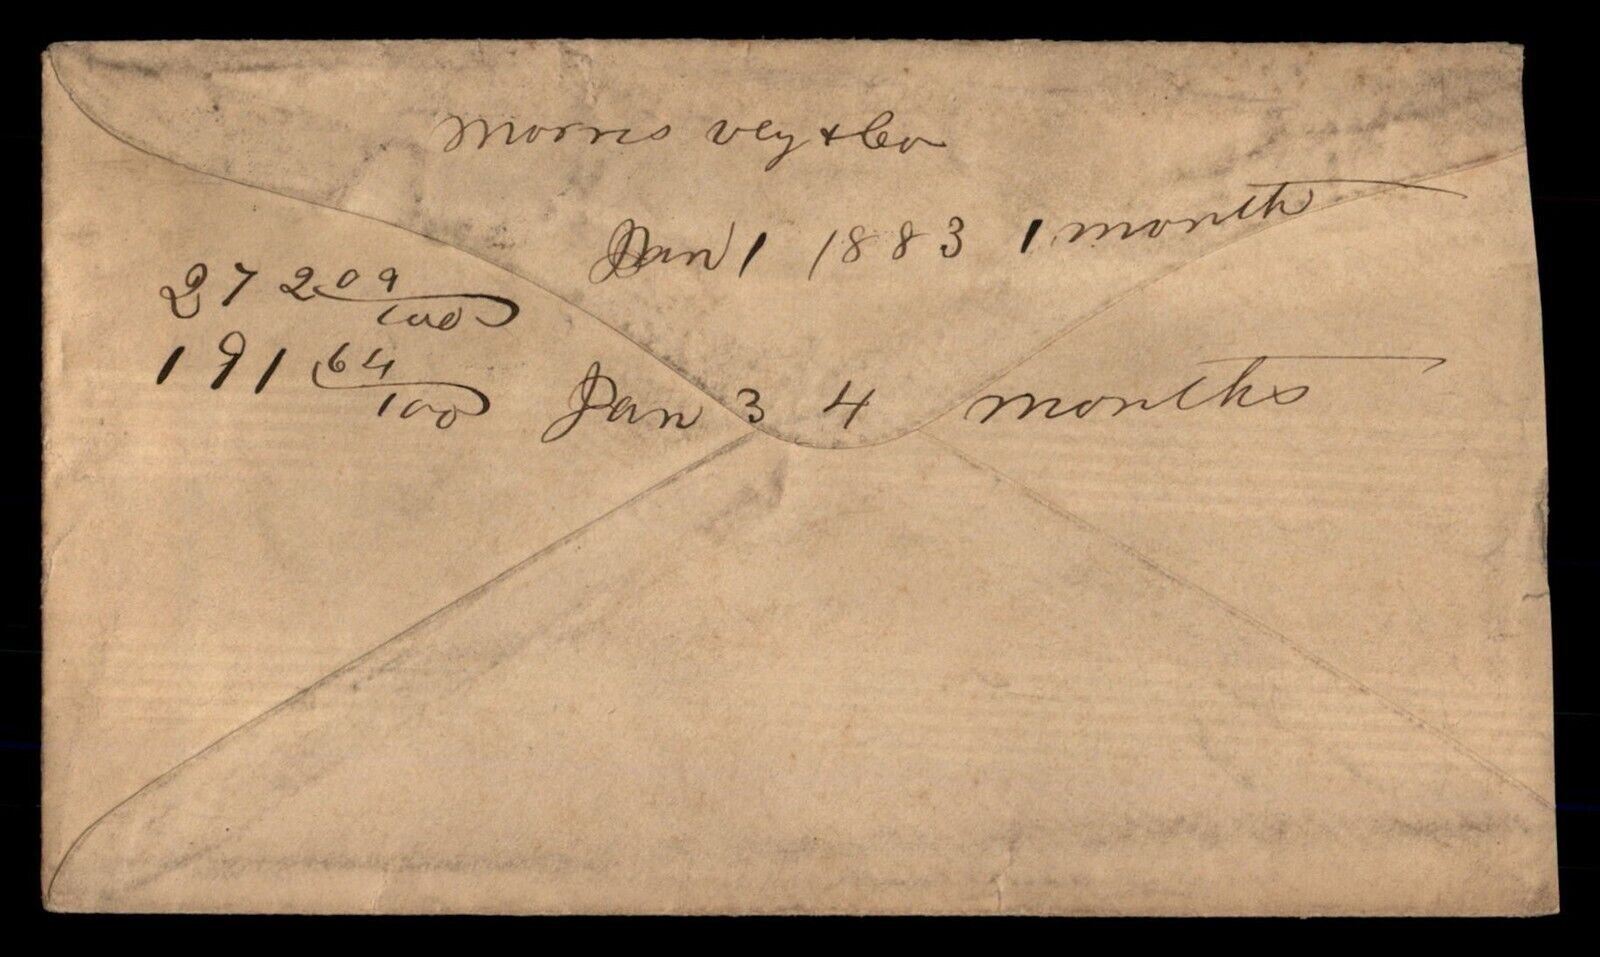 Morris Vey & Co
Jan 1 1883 1 month
272 09/100
191 64/100 Jan 3 4 months